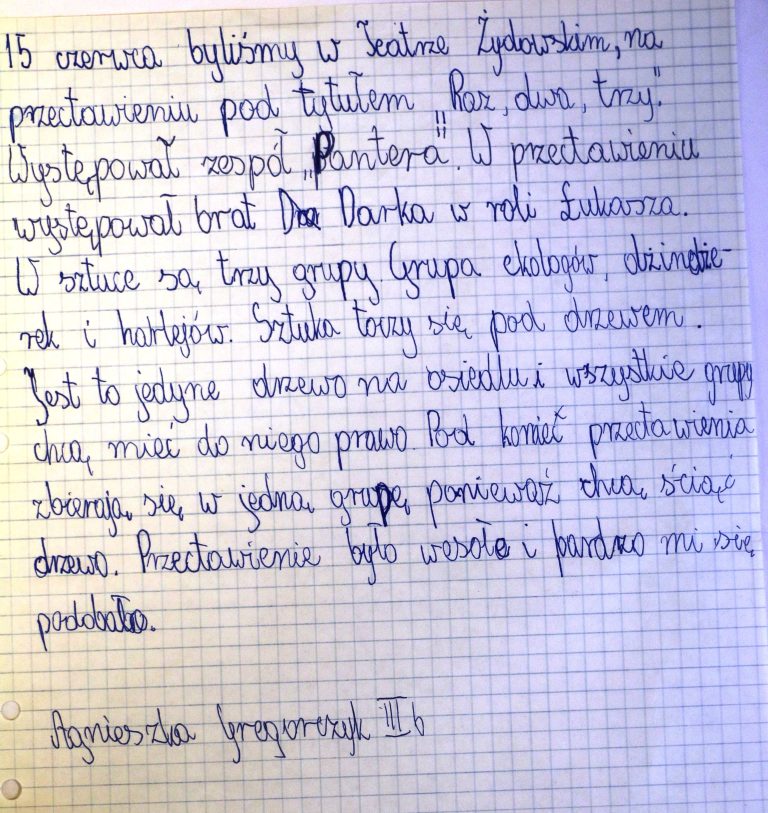 15 czerwca byliśmy w Teatrze Żydowskim, na
przectawieniu pod tytułem „Raz, dwa, trzy".
Występował zespół „Pantera". W przectawieniu
występował brat Darka w roli Łukasza.
W sztuce są trzy grupy. Grupa ekologów, dżindże-
rek i harlejów. Sztuka toczy się pod drzewem.
Jest to jedyne drzewo na osiedlu i wszystkie grupy
chcą mieć do niego prawo. Pod konieć przectawienia
zbierają się w jedną grupę ponieważ chcą ściąć
drzewo. Przectawienie było wesołe i pardzo mi się
podobało.
Agnieszka Gregorczyk III b